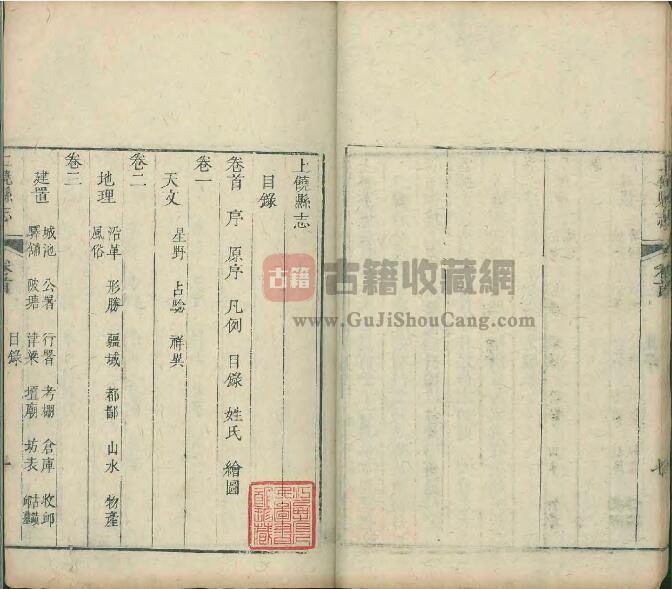 上饒縣志
目錄
卷首 序 原序 凡例 目錄 姓氏 繪圖
卷一
天文 星野 占驗 祥異
卷二
地理 沿革 形勝 疆域 都鄙 山水 物產
風俗
卷三
建置 城池 公署 行署 考棚 倉庫
驛舖 陂塘 津梁 壇廟 坊表
目錄
饒縣志
卷首
古籍
古籍收藏網
www.GuJiShouCang.com